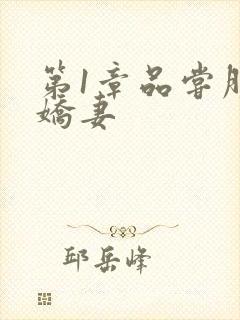 第1章品尝
嬌妻
邱岳峰